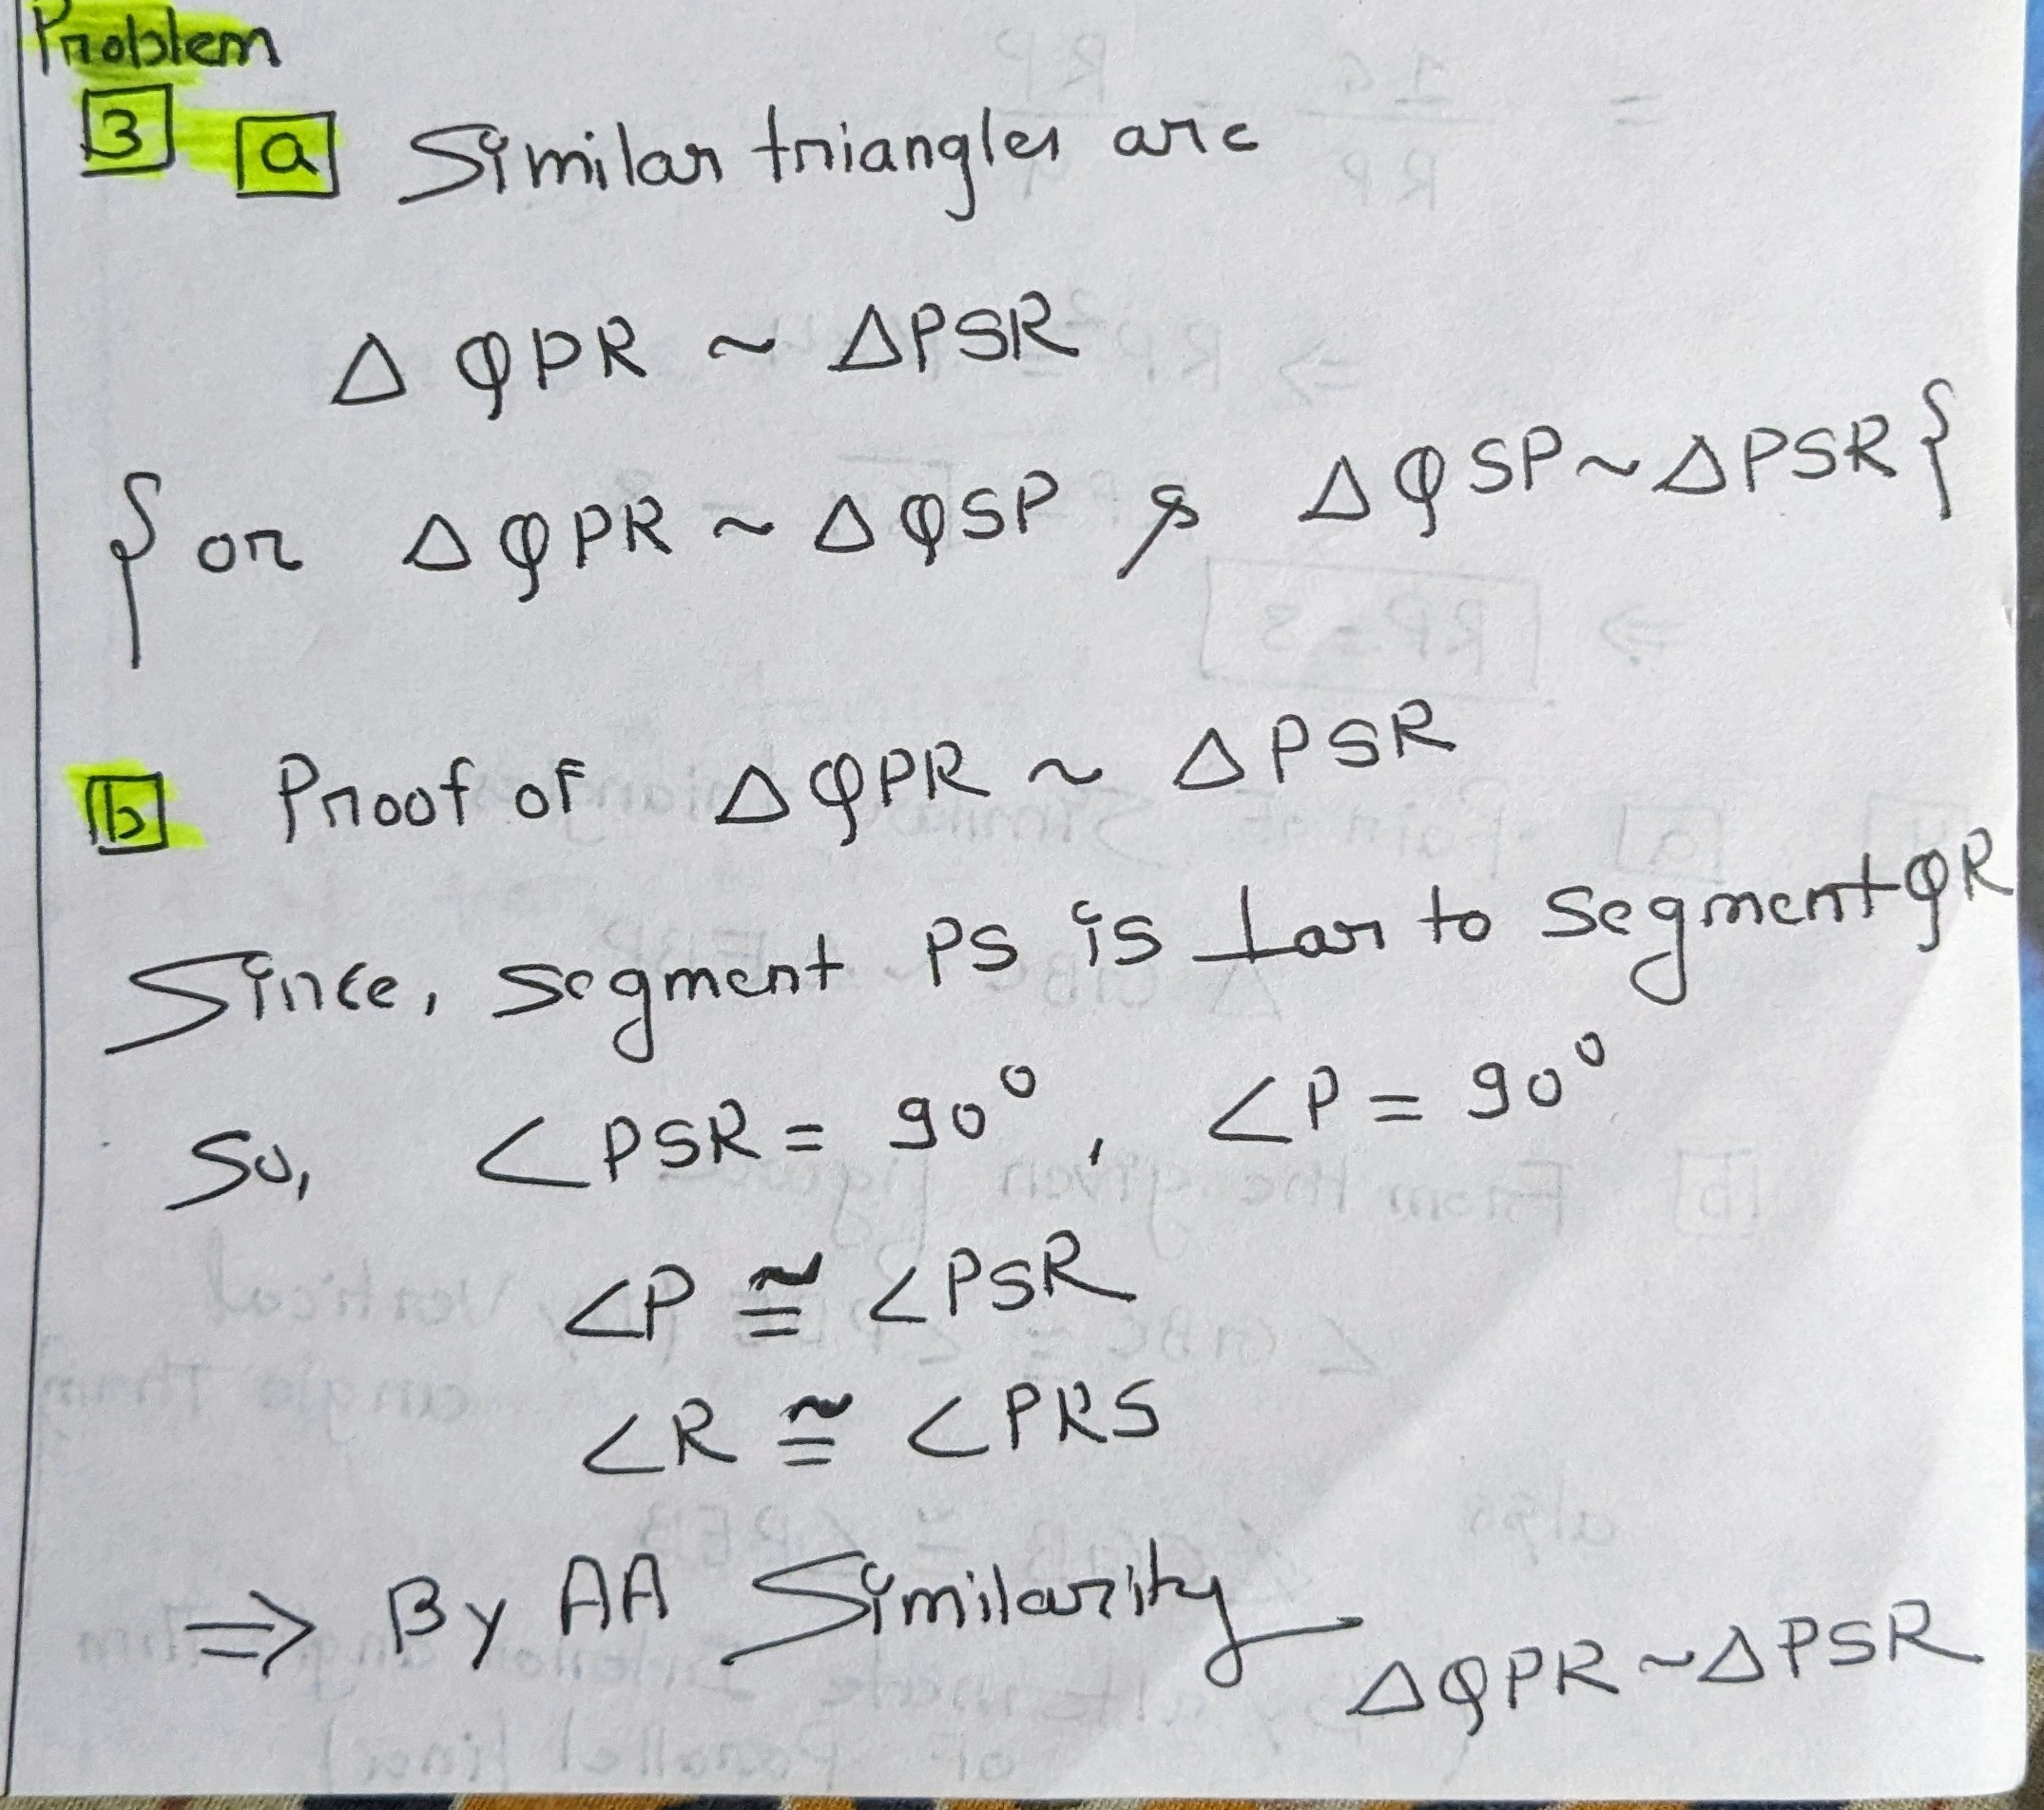 Problem
3 a Similar triangles are
Δ QPR ~ ΔPSR
{ or ΔQPR ~ ΔQSP & ΔQSP ~ ΔPSR }
b Proof of ΔQPR ~ ΔPSR
Since, segment PS is ⊥ar to segment QR
So, ∠PSR = 90°, ∠P = 90°
∠P ≅ ∠PSR
∠R ≅ ∠PRS
⇒ By AA Similarity ΔQPR ~ ΔPSR